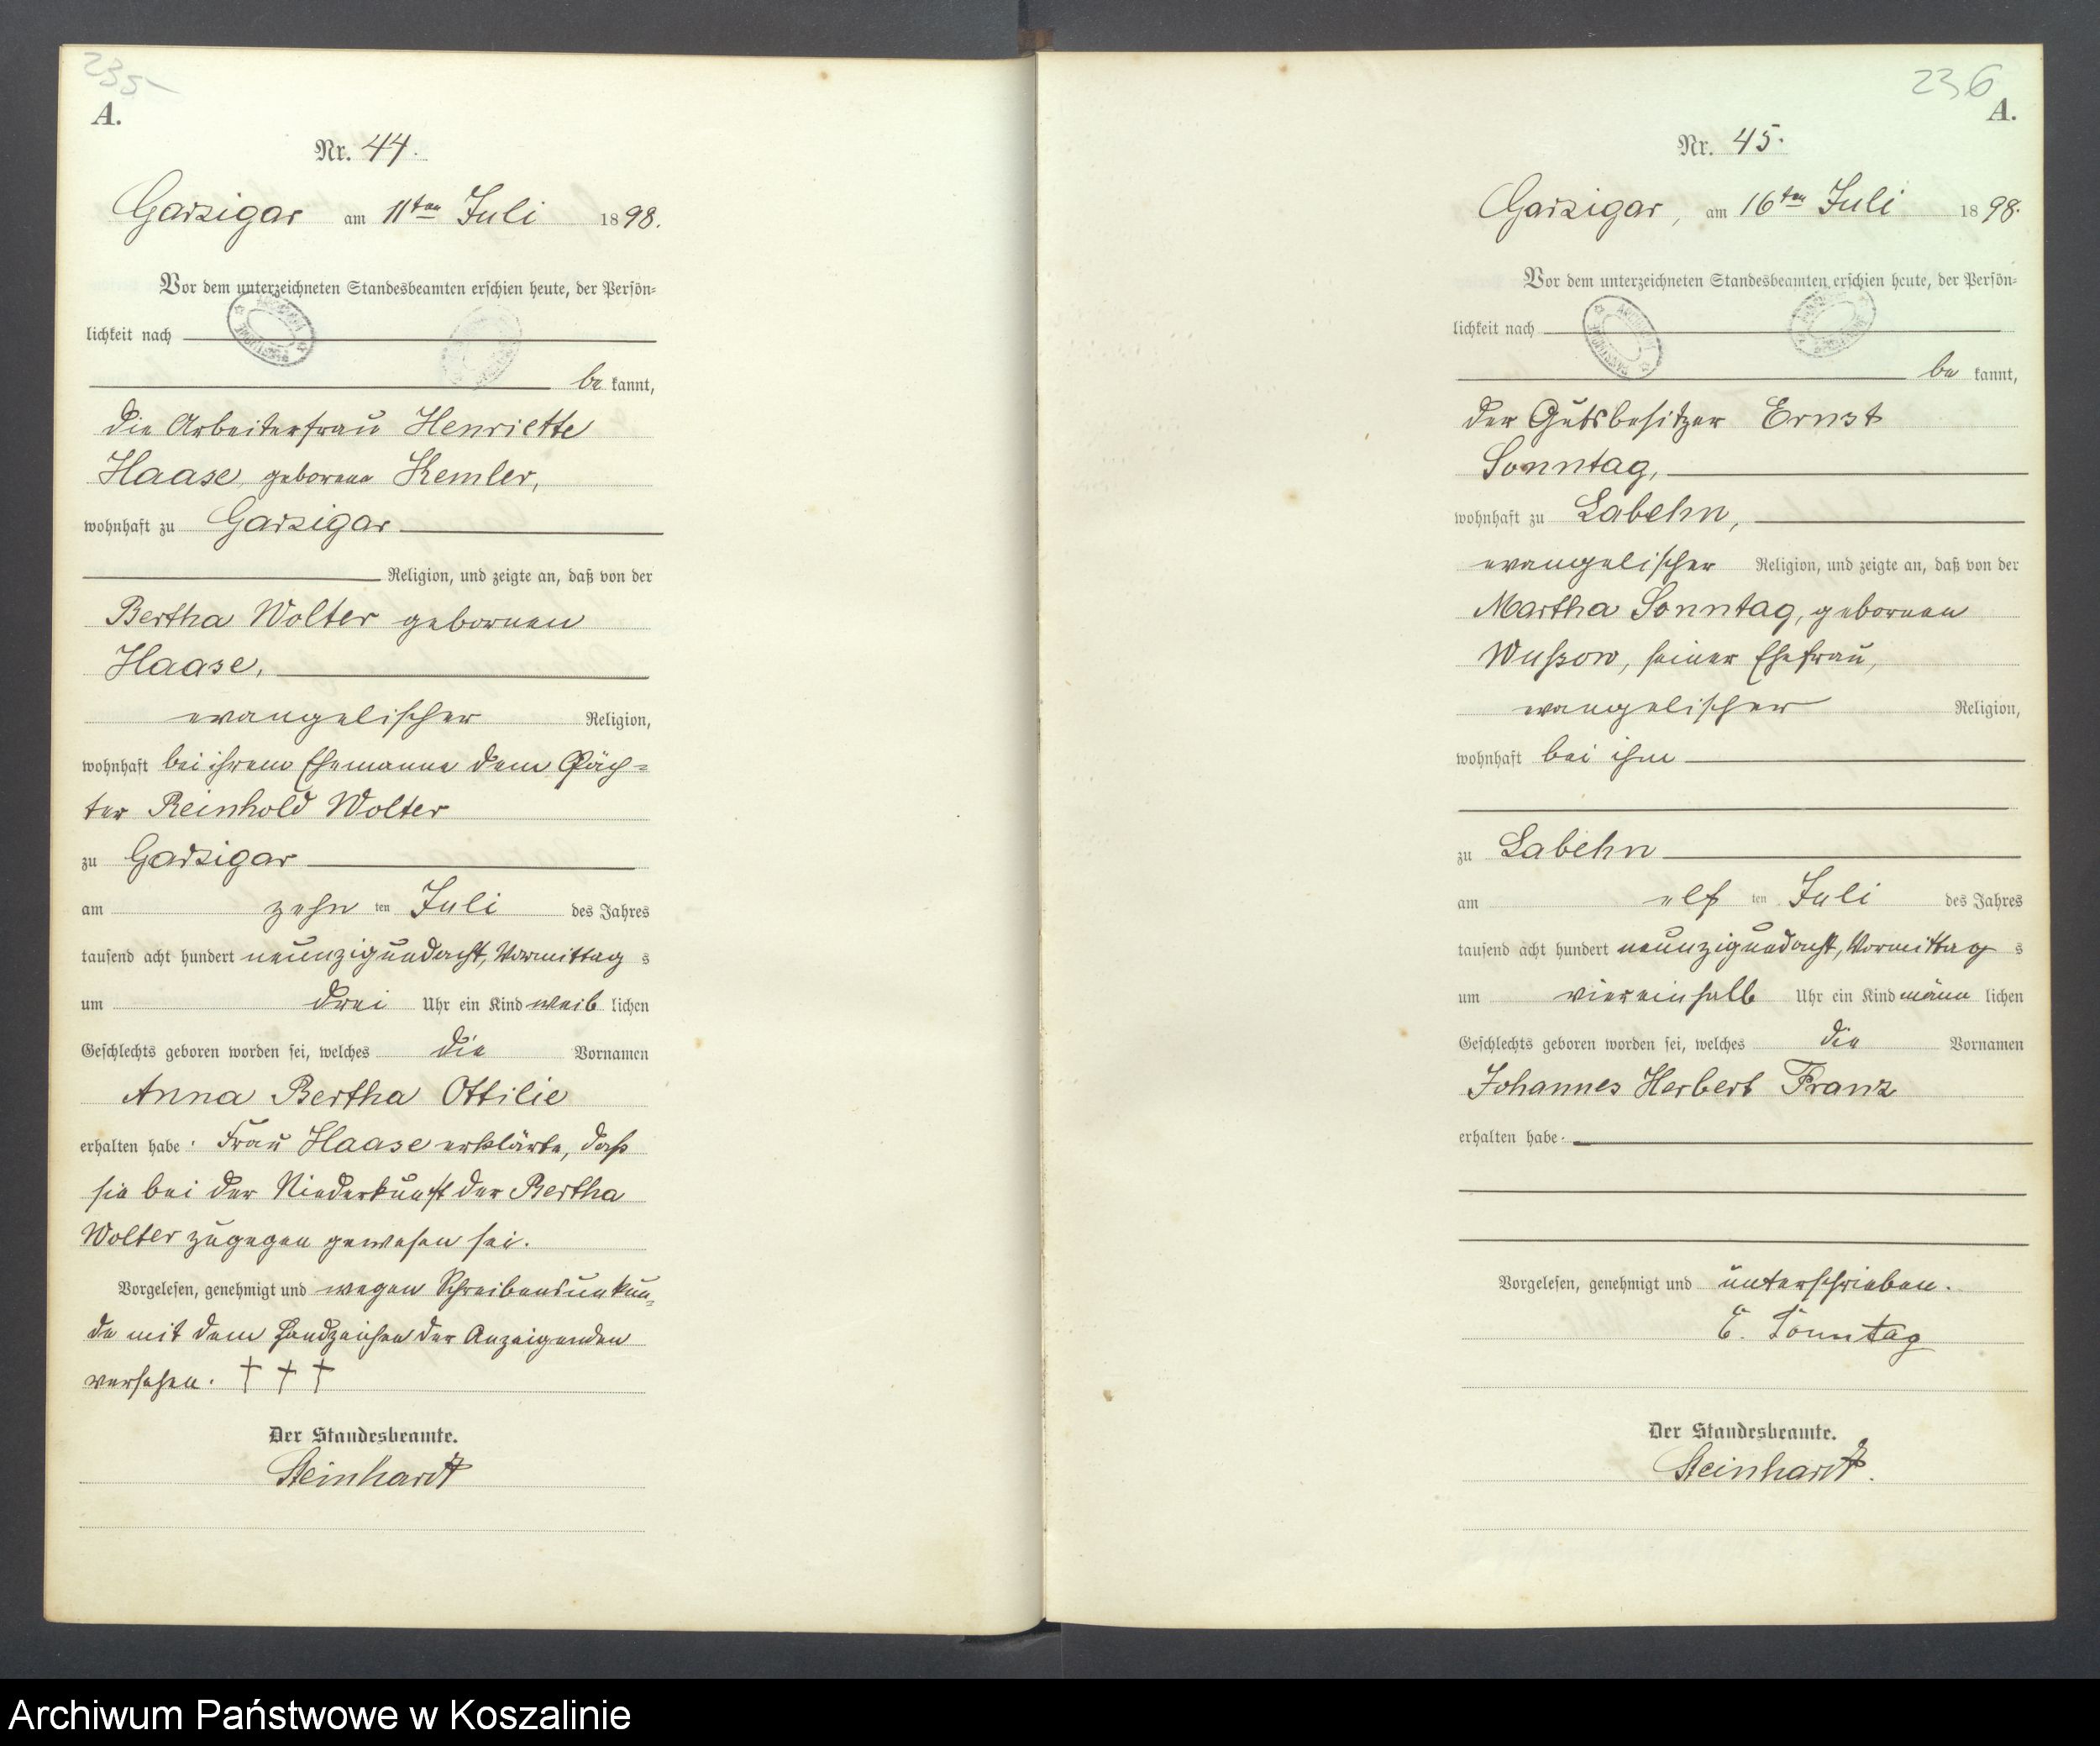 235
A.
Nr. 44.
Garzigar am 11ten Juli 1898.
Vor dem unterzeichneten Standesbeamten erschien heute, der Persön-
lichkeit nach
be kannt,
die Arbeiterfrau Henriette
Haase, geborene Kemler,
wohnhaft zu Garzigar
Religion, und zeigte an, daß von der
Bertha Wolter gebornen
Haase,
evangelischer Religion,
wohnhaft bei ihrem Ehemanne dem Päch-
ter Reinhold Wolter
zu Garzigar
am zehn ten Juli des Jahres
tausend acht hundert neunzigundacht, Vormittag s
um drei Uhr ein Kind weib lichen
Geschlechts geboren worden sei, welches die Vornamen
Anna Bertha Ottilie
erhalten habe. Frau Haase erklärte, daß
sie bei der Niederkunft der Bertha
Wolter zugegen gewesen sei.
Vorgelesen, genehmigt und wegen Schreibensunkun-
de mit dem Handzeichen der Anzeigenden
versehen. † † †
Der Standesbeamte.
Steinhardt
236
A.
Nr. 45.
Garzigar, am 16ten Juli 1898.
Vor dem unterzeichneten Standesbeamten erschien heute, der Persön-
lichkeit nach
be kannt,
der Gutsbesitzer Ernst
Sonntag,
wohnhaft zu Labehn,
evangelischer Religion, und zeigte an, daß von der
Martha Sonntag, gebornen
Wußow, seiner Ehefrau,
evangelischer Religion,
wohnhaft bei ihm
zu Labehn
am elf ten Juli des Jahres
tausend acht hundert neunzigundacht, Vormittag s
um viereinhalb Uhr ein Kind männ lichen
Geschlechts geboren worden sei, welches die Vornamen
Johannes Herbert Franz
erhalten habe.
Vorgelesen, genehmigt und unterschrieben.
E. Sonntag
Der Standesbeamte.
Steinhardt.
Archiwum Państwowe w Koszalinie